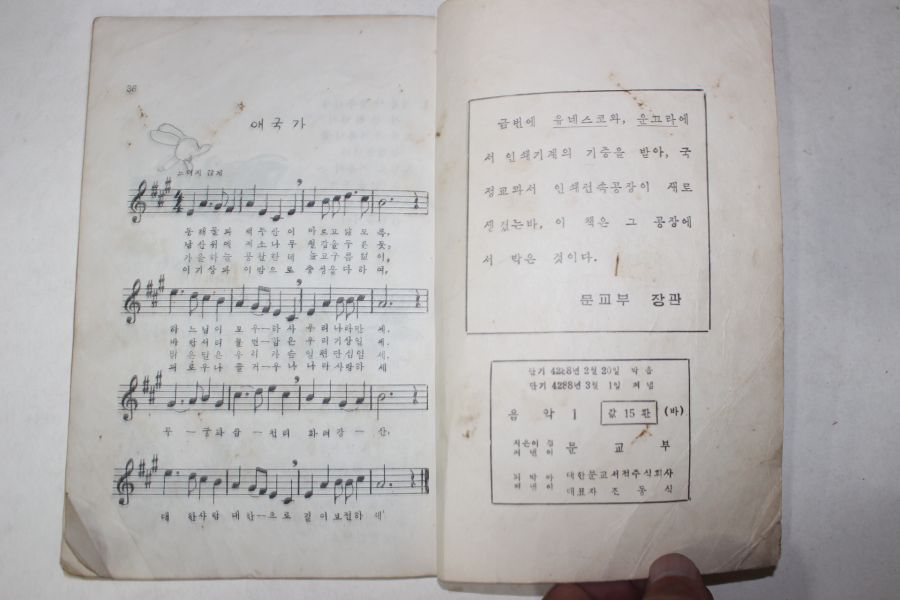 36
애국가
느리지 않게
동해물과 백두산이 마르고 닳도록,
남산위에 저소나무 철갑을 두른듯,
가을하늘 공활한데 높고구름 없이,
이기상과 이맘으로 충성을 다하여,
하느님이 보우—하사 우리나라만 세.
바람서리 불변—함은 우리기상일 세.
밝은달은 우리 가슴 일편단심일 세.
괴로우나 즐거—우나 나라사랑하 세
무—궁화삼—천리 화려강—산,
대 한사람 대한—으로 길이보전하 세
금번에 유네스코와, 운끄라에
서 인쇄기계의 기증을 받아, 국
정교과서 인쇄전속공장이 새로
생겼는바, 이 책은 그 공장에
서 박은 것이다.
문교부 장관
단기 4288년 2월 20일 박음
단기 4288년 3월 1일 펴냄
음 악 1 값 15 환 (바)
지은이 겸
펴낸이 문 교 부
박아
펴낸이 대한문교서적주식회사
대표자 동 식